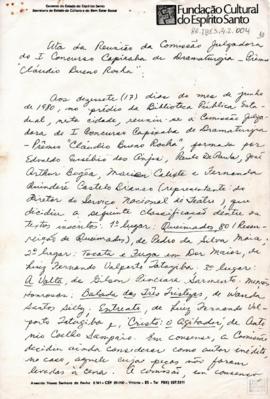 Governo do Estado do Espírito Santo
Secretaria de Estado da Cultura e do Bem Estar Social
Fundação Cultural
do Espírito Santo
BR.IBES.A.2.004
Ata da Reunião da Comissão Julgadora
do I Concurso Capixaba de Dramaturgia - Prêmio
"Cláudio Bueno Rocha".
Aos dezessete (17) dias do mês de junho
de 1980, no prédio da Biblioteca Pública Esta-
dual, nesta cidade, reuniu-se a Comissão Julga-
dora do I Concurso Capixaba de Dramaturgia
- Prêmio "Cláudio Bueno Rocha", formada por
Edvaldo Eusébio dos Anjos, Paulo DePaula, José
Arthur Bogéa, Marien Calixte e Fernanda
Quinderé Castelo Branco (representante do
Diretor do Serviço Nacional de Teatro), que
decidiu a seguinte classificação dentre os
textos inscritos: 1º lugar: Queimados, 80 (Ressur-
reição de Queimados), de Pedro da Silva Maia.
2º lugar: Tocata e Fuga em Dor Maior, de
Luiz Fernando Valporto Tatagiba. 3º lugar:
A Volta, de Gilson Sarmento. Menções
Honrosas: Balada dos Três Tristyes, de Wanda
Santos Silly, Entreato, de Luiz Fernando Val-
porto Tatagiba e, Cristo: O Agitador, de Antô-
nio Coelho Sampaio. Em consenso, a Comissão
decidiu ainda considerar como autor inédito
no caso, aquele cujas peças não foram
levadas à cena. A comissão, em consenso